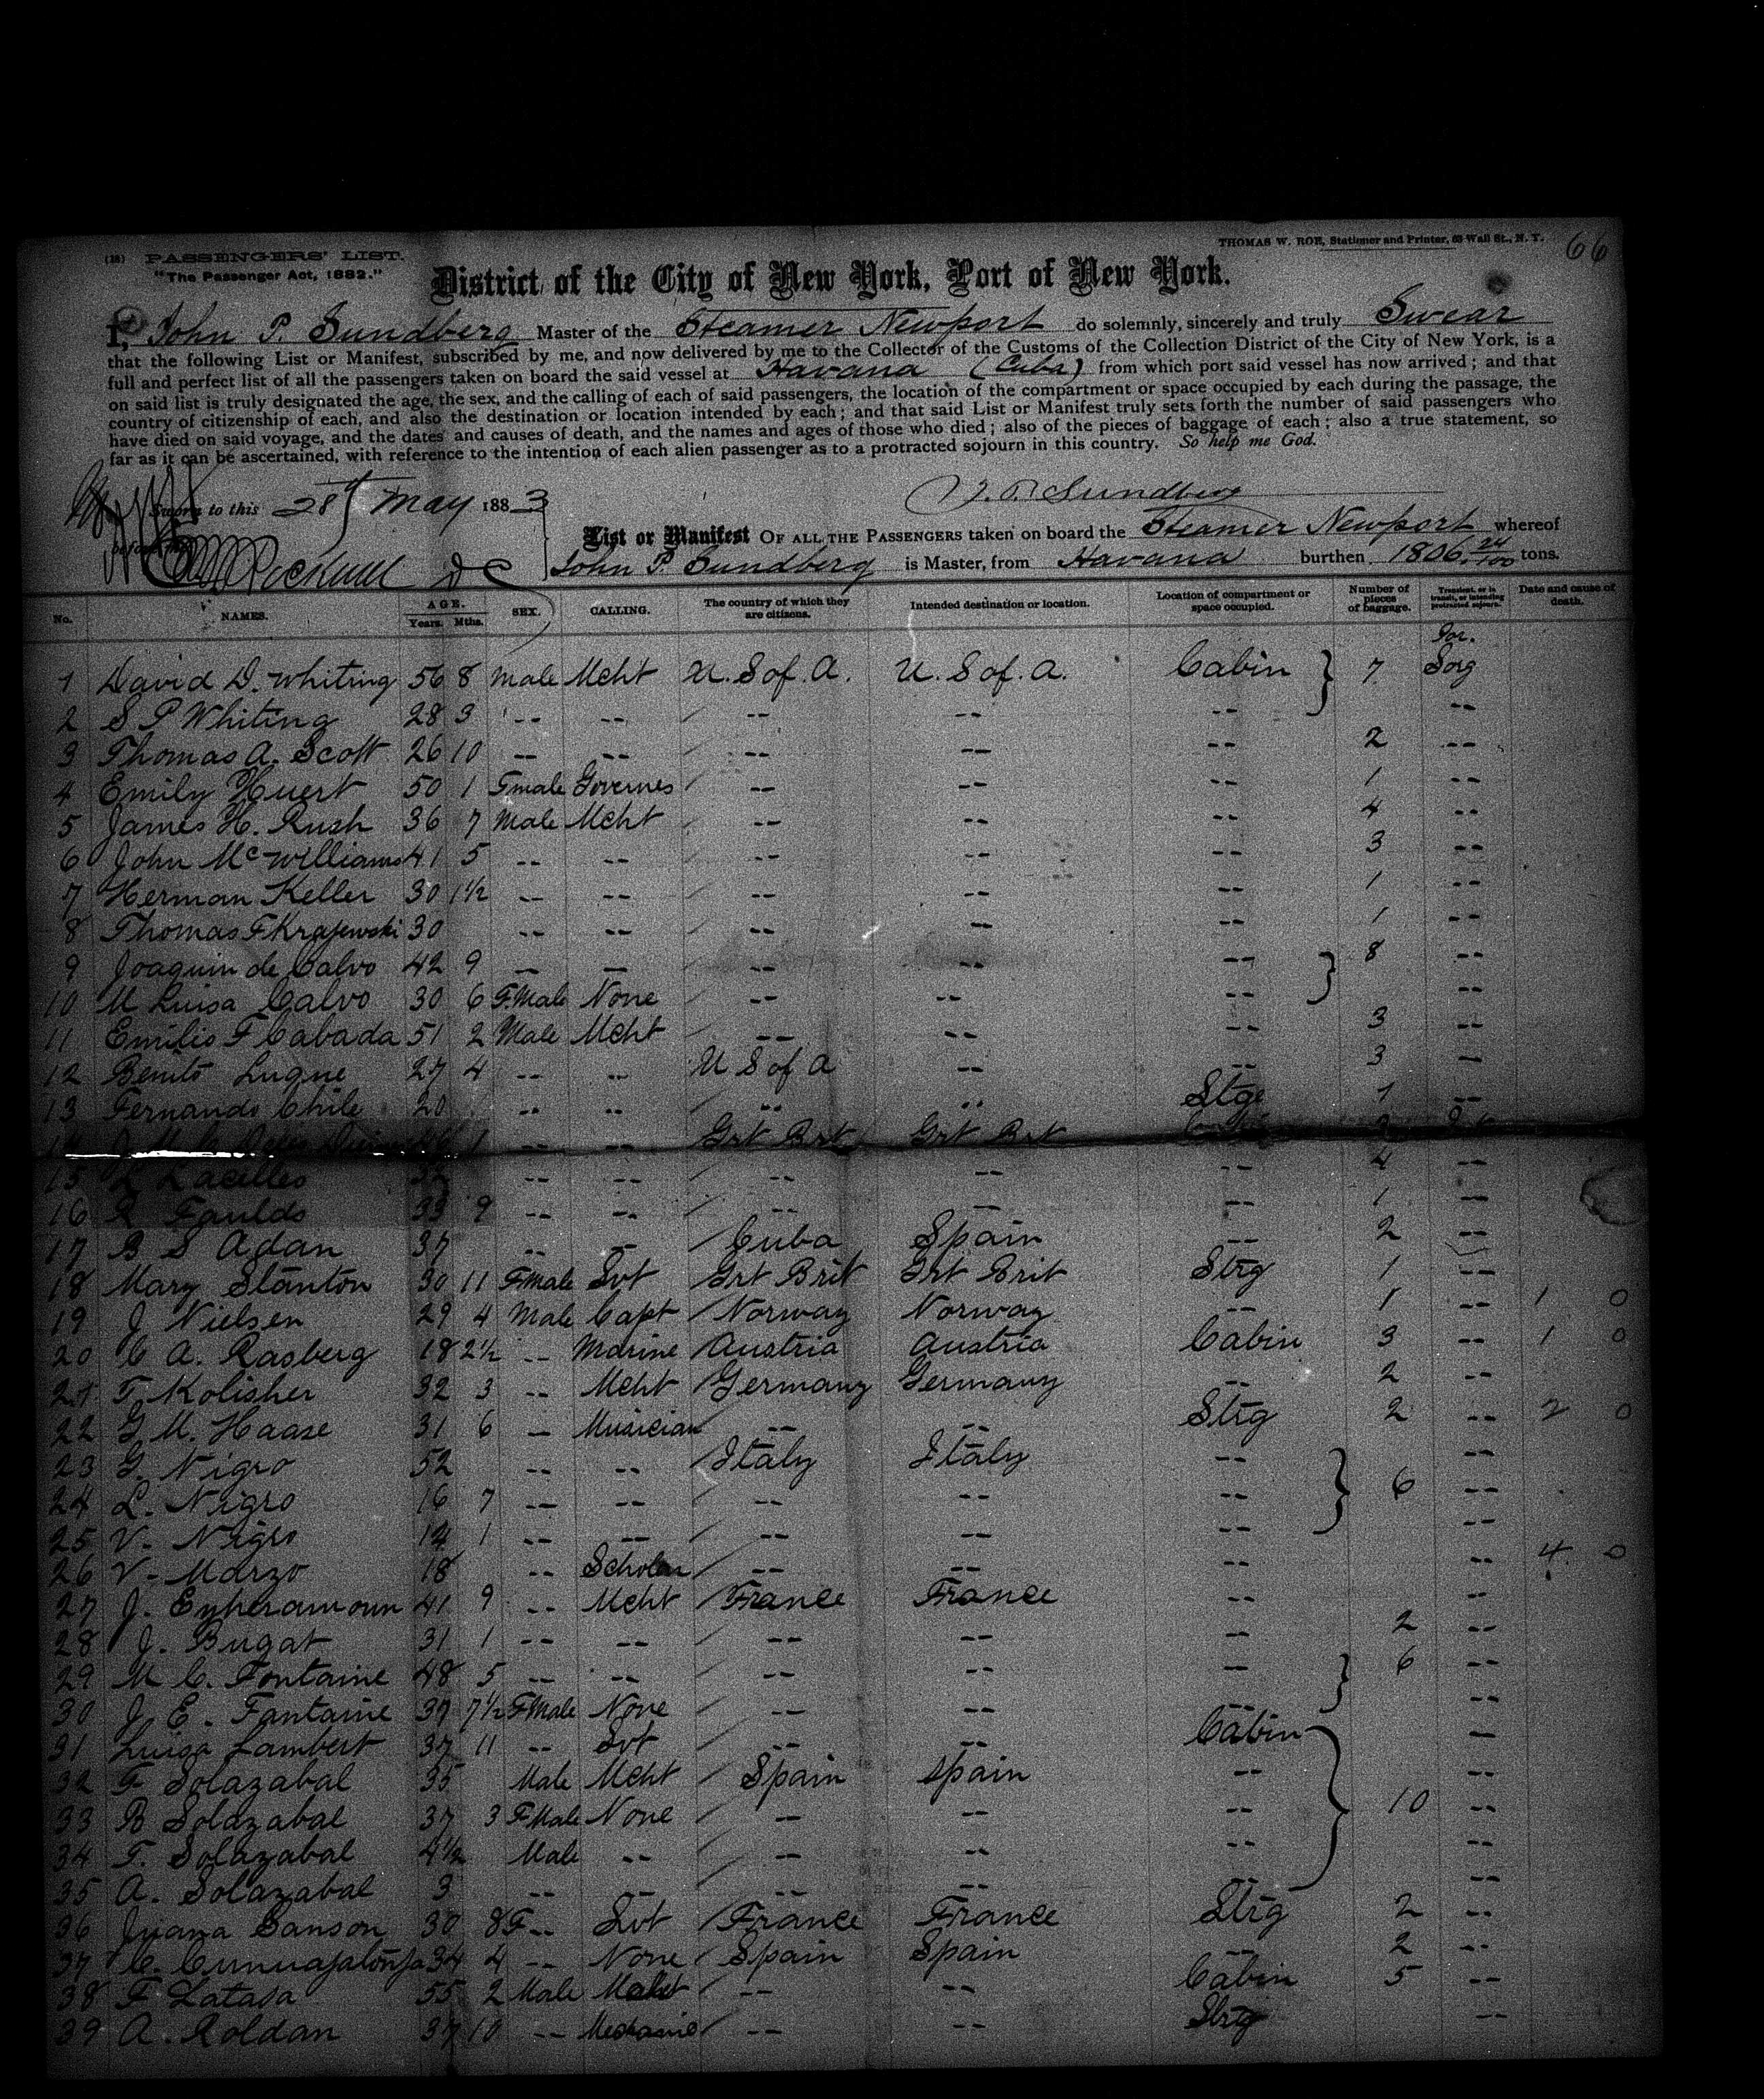 (18) PASSENGERS' LIST.
"The Passenger Act, 1882."
THOMAS W. ROE, Stationer and Printer, 63 Wall St., N. Y.
66
District of the City of New York, Port of New York.
I, John P. Sundberg Master of the Steamer Newport do solemnly, sincerely and truly Swear
that the following List or Manifest, subscribed by me, and now delivered by me to the Collector of the Customs of the Collection District of the City of New York, is a
full and perfect list of all the passengers taken on board the said vessel at Havana (Cuba) from which port said vessel has now arrived; and that
on said list is truly designated the age, the sex, and the calling of each of said passengers, the location of the compartment or space occupied by each during the passage, the
country of citizenship of each, and also the destination or location intended by each; and that said List or Manifest truly sets forth the number of said passengers who
have died on said voyage, and the dates and causes of death, and the names and ages of those who died; also of the pieces of baggage of each; also a true statement, so
far as it can be ascertained, with reference to the intention of each alien passenger as to a protracted sojourn in this country. So help me God.
Sworn to this 28th May 1883
J. P. Sundberg
before me
Rockwell D C
List or Manifest OF ALL THE PASSENGERS taken on board the Steamer Newport whereof
John P. Sundberg is Master, from Havana burthen 1806 24/100 tons.
No. NAMES. AGE. Years. Mths. SEX. CALLING. The country of which they are citizens. Intended destination or location. Location of compartment or space occupied. Number of pieces of baggage. Transient, or in transit, or intending protracted sojourn. Date and cause of death.
1 David D. Whiting 56 8 Male Mcht U. S of. A. U. S of. A. Cabin 7 Sorg
2 S P Whiting 28 3 -- -- -- -- -- --
3 Thomas A. Scott 26 10 -- -- -- -- -- 2 --
4 Emily Huert 50 1 Fmale Governes -- -- -- 1 --
5 James H. Rush 36 7 Male Mcht -- -- -- 4 --
6 John McWilliams 41 5 -- -- -- -- -- 3 --
7 Herman Keller 30 1½ -- -- -- -- -- 1 --
8 Thomas F Krajewski 30 -- -- -- -- -- 1 --
9 Joaquin de Calvo 42 9 -- -- -- -- -- 8 --
10 M Luisa Calvo 30 6 F.Male None -- -- -- --
11 Emilio F Cabada 51 2 Male Mcht -- -- -- 3 --
12 Benito Luque 27 4 -- -- U S of A -- -- 3 --
13 Fernando Chile 20 -- -- -- -- Stge 1 --
14 J M C 1 -- -- Grt Brt Grt Brt
15 L Lacelles -- -- -- -- -- 4 --
16 R Faulds 33 9 -- -- -- -- -- 1 --
17 B S Adan 37 -- -- Cuba Spain -- 2 --
18 Mary Stanton 30 11 FMale Svt Grt Brit Grt Brit Strg 1 --
19 J Nielsen 29 4 Male Capt Norway Norway -- 1 -- 1 0
20 C A. Rasberg 18 2½ -- Marine Austria Austria Cabin 3 -- 1 0
21 F. Kolisher 32 3 -- Mcht Germany Germany -- 2 --
22 G. M. Haase 31 6 -- Musician -- -- Strg 2 -- 2 0
23 G. Nigro 52 -- -- Italy Italy -- --
24 L. Nigro 16 7 -- -- -- -- -- 6 --
25 V. Nigro 14 1 -- -- -- -- -- --
26 V. Marzo 18 -- Scholar -- -- -- -- 4 0
27 J. Eyheramoun 41 9 -- Mcht France France -- --
28 J. Bugat 31 1 -- -- -- -- -- 2 --
29 M C. Fontaine 48 5 -- -- -- -- -- 6 --
30 J E. Fantaine 39 7½ FMale None -- -- -- --
31 Luisa Lambert 37 11 -- Svt -- -- Cabin --
32 F Solazabal 35 Male Mcht Spain Spain -- --
33 B Solazabal 37 3 FMale None -- -- -- 10 --
34 F. Solazabal 4½ Male -- -- -- -- --
35 A. Solazabal 3 -- -- -- -- -- --
36 Juana Sanson 30 8 F-- Svt France France Strg 2 --
37 C. 34 4 -- None Spain Spain -- 2 --
38 F Latasa 55 2 Male -- -- Cabin 5 --
39 A. Roldan 37 10 -- Mechanic -- -- Strg --